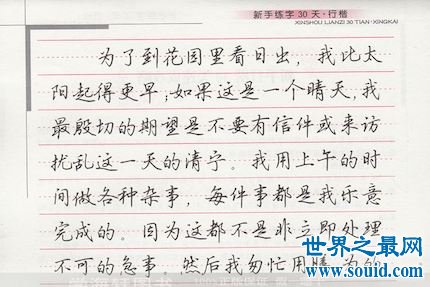 新手练字30天·行楷
XINSHOU LIANZI 30 TIAN·XINGKAI
为了到花园里看日出，我比太
阳起得更早；如果这是一个晴天，我
最殷切的期望是不要有信件或来访
扰乱这一天的清宁。我用上午的时
间做各种杂事，每件事都是我乐意
完成的。因为这都不是非立即处理
不可的急事，然后我匆忙用膳，为的
世界之最网
www.souid.com